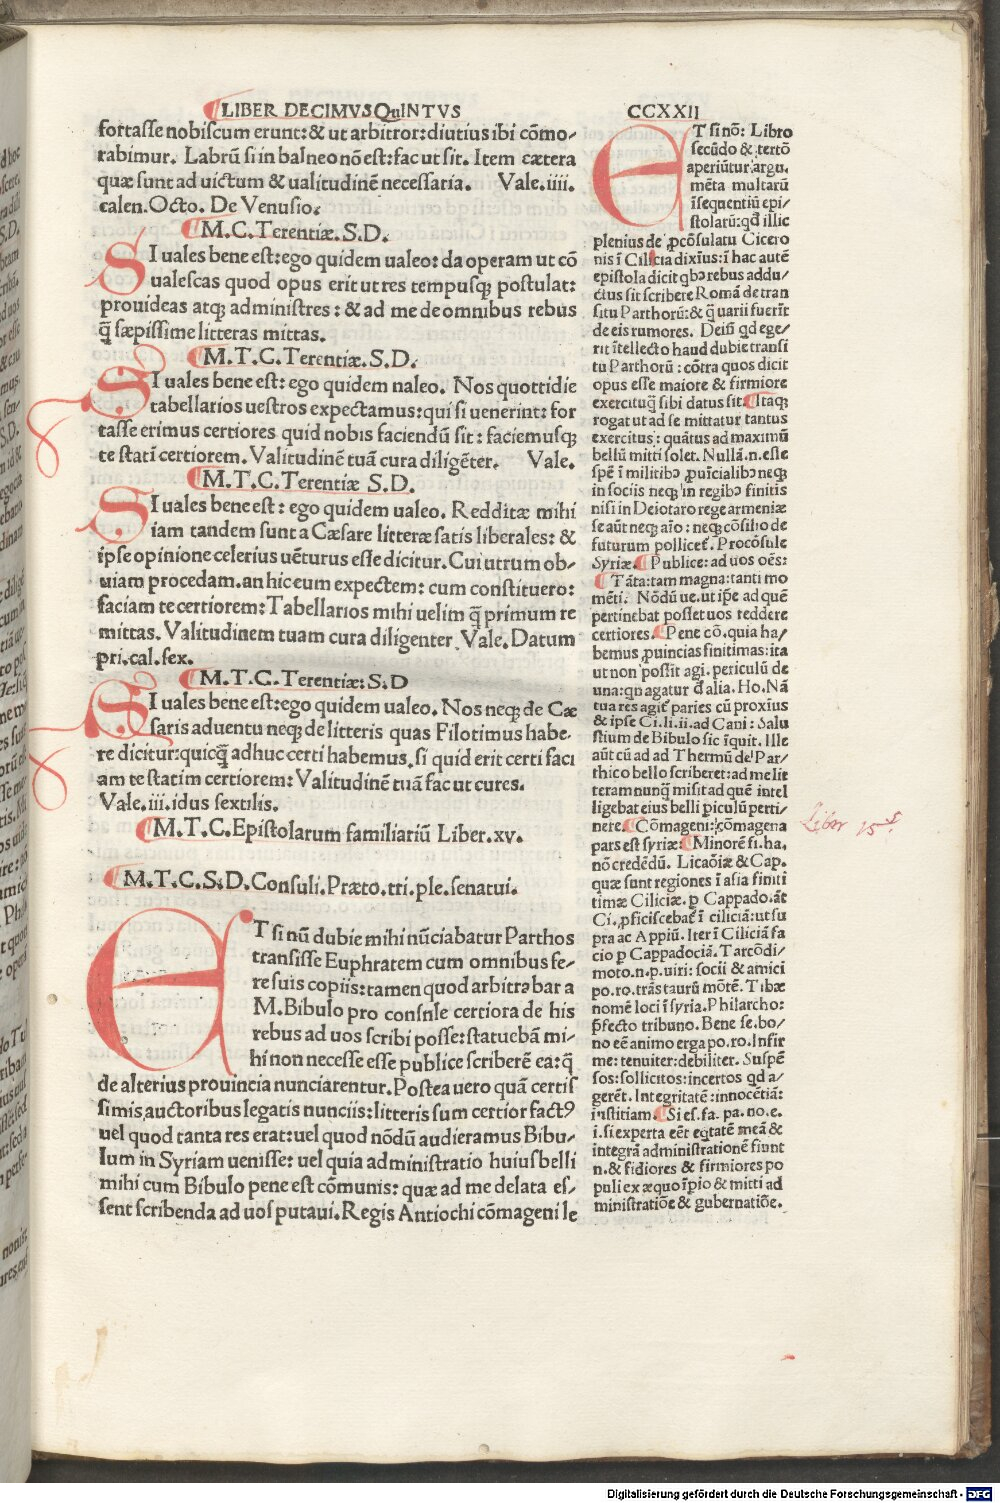 LIBER DECIMVS QuINTVS
CCXXII
fortasse nobiscum erunt: & ut arbitror: diutius ibi cōmo-
rabimur. Labrū si in balneo nō est: fac ut sit. Item cætera
quæ sunt ad uictum & ualitudinē necessaria. Vale. iiii.
calen. Octo. De Venusio.
M. C. Terentiæ. S. D.
SI uales bene est: ego quidem ualeo: da operam ut cō
ualescas quod opus erit ut res tempusqȝ postulat:
prouideas atqȝ administres: & ad me de omnibus rebus
q̄ sæpissime litteras mittas.
M. T. C. Terentiæ. S. D.
SI uales bene est: ego quidem naleo. Nos quottidie
tabellarios uestros expectamus: qui si uenerint: for
tasse erimus certiores quid nobis faciendū sit: faciemusqȝ
te statī certiorem. Valitudinē tuā cura diligēter. Vale.
M. T. C. Terentiæ S. D.
SI uales bene est: ego quidem ualeo. Redditæ mihi
iam tandem sunt a Cæsare litteræ satis liberales: &
ipse opinione celerius uēturus esse dicitur. Cui utrum ob-
uiam procedam. an hic eum expectem: cum constituero:
faciam te certiorem: Tabellarios mihi uelim q̄ primum re
mittas. Valitudinem tuam cura diligenter. Vale. Datum
pri. cal. sex.
M. T. C. Terentiæ: S. D
SI uales bene est: ego quidem ualeo. Nos neqȝ de Cæ
saris aduentu neqȝ de litteris quas Filotimus habe-
re dicitur: quicq̄ adhuc certi habemus. si quid erit certi faci
am te statim certiorem: Valitudinē tuā fac ut cures.
Vale. iii. idus sextilis.
M. T. C. Epistolarum familiariū Liber. xv.
M. T. C. S. D. Consuli. Præto. tri. ple. senatui.
ET si nū dubie mihi nūciabatur Parthos
transisse Euphratem cum omnibus fe-
re suis copiis: tamen quod arbitrabar a
M. Bibulo pro consnle certiora de his
rebus ad uos scribi posse: statuebā mi-
hi non necesse esse publice scriberē ea: q̄
de alterius prouincia nunciarentur. Postea uero quā certis
simis auctoribus legatis nunciis: litteris sum certior fact9
uel quod tanta res erat: uel quod nōdū audieramus Bibu-
lum in Syriam uenisse: uel quia administratio huius belli
mihi cum Bibulo pene est cōmunis: quæ ad me delata es-
sent scribenda ad uos putaui. Regis Antiochi cōmageni le
ET si nō: Libro
secūdo & tertō
aperiūtur argu.
mēta multarū
īsequentiū epi-
stolarū: qđ illic
plenius de ꝓcōsulatu Cicero
nis ī Cilicia dixius: ī hac autē
epistola dicit qbɔ rebus addu-
ctus sit scribere Romā de tran
situ Parthorū: & q̄ uarii fuerīt
de eis rumores. Deiñ qd ege-
rit ītellecto haud dubie transi
tu Parthorū: cōtra quos dicit
opus esse maiore & firmiore
exercituq̄ sibi datus sit. Itaqȝ
rogat ut ad se mittatur tantus
exercitus: quātus ad maximū
bellū mitti solet. Nullā. n. esse
spē ī militibɔ ꝓuīcialibɔ neqȝ
in sociis neqȝ in regibɔ finitis
nisi in Deiotaro rege armeniæ
se aūt neqȝ aīo: neqȝ cōsilio de
futurum pollicet̄. Procōsule
Syriæ. Publice: ad uos oēs:
Tāta: tam magna: tanti mo
mēti. Nōdū ue. ut ip̄e ad quē
pertinebat posset uos reddere
certiores. Pene cō. quia ha-
bemus ꝓuincias finitimas: ita
ut non possit agi. periculū de
una: qn agatur đ alia. Ho. Nā
tua res agit̄ paries cū proxius
& ipse Ci. li. ii. ad Cani: Salu
stium de Bibulo sic īquit. Ille
aūt cū ad ad Thermū de Par-
thico bello scriberet: ad me lit
teram nunq̄ misit ad quē intel
ligebat eius belli ꝑiculū perti-
nere. Cōmageni: cōmagena
pars est syriæ. Minorē fi. ha.
nō credēdū. Licaōiæ & Cap.
quæ sunt regiones ī asia finitī
timæ Ciliciæ. p Cappado. āt
Ci. ꝓficiscebat̄ ī ciliciā: ut su
pra ac Appiū. Iter ī Ciliciā fa
cio p Cappadociā. Tarcōdi-
moto. n. p. uiri: socii & amici
po. ro. trās taurū mōtē. Tibæ
nomē loci ī syria. Philarcho:
p̄fecto tribuno. Bene se. bo-
no eē animo erga po. ro. Infir
me: tenuiter: debiliter. Suspē
sos: sollicitos: incertos qd a-
gerēt. Integritatē: innocētiā:
iustitiam. Si es. fa. pa. no. e.
i. si experta eēt eq̄tatē meā &
integrā administrationē fiunt
n. & fidiores & firmiores po
puli ex æquo īpio & mitti ad
ministratiōe & gubernatiōe.
Liber 15
Digitalisierung gefördert durch die Deutsche Forschungsgemeinschaft - DFG